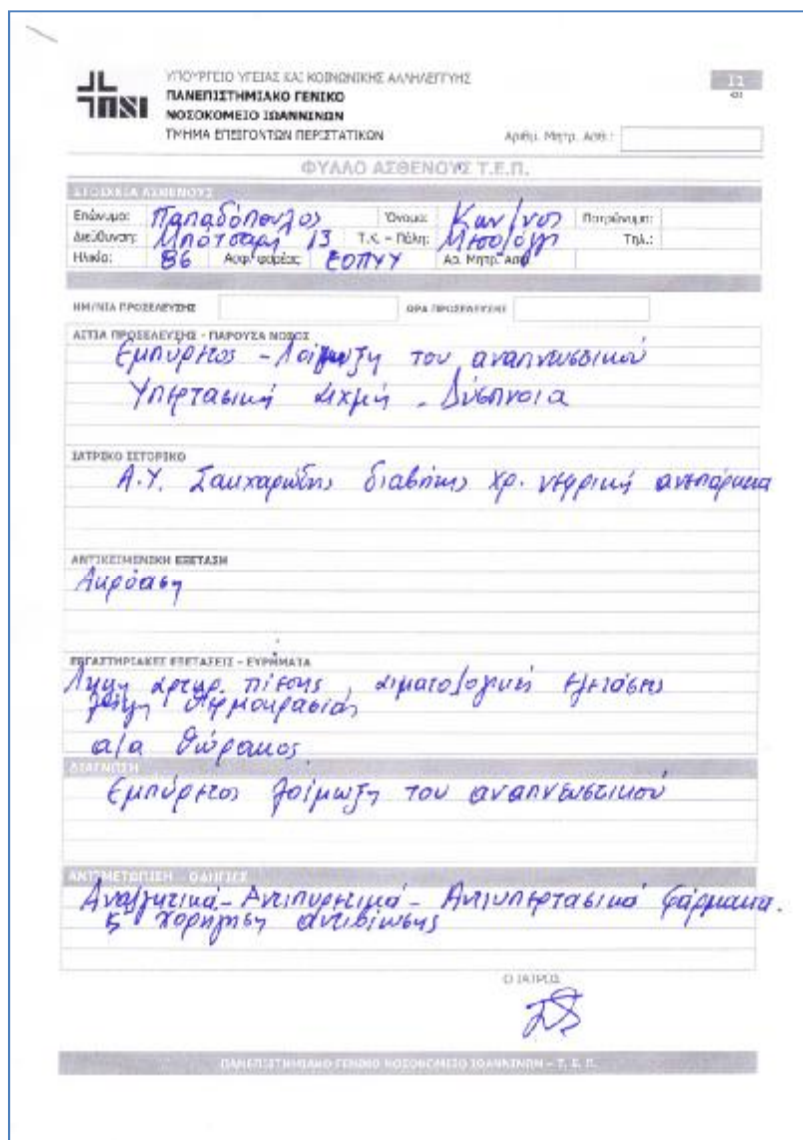 ΥΠΟΥΡΓΕΙΟ ΥΓΕΙΑΣ ΚΑΙ ΚΟΙΝΩΝΙΚΗΣ ΑΛΛΗΛΕΓΓΥΗΣ
ΠΑΝΕΠΙΣΤΗΜΙΑΚΟ ΓΕΝΙΚΟ
ΝΟΣΟΚΟΜΕΙΟ ΙΩΑΝΝΙΝΩΝ
ΤΜΗΜΑ ΕΠΕΙΓΟΝΤΩΝ ΠΕΡΙΣΤΑΤΙΚΩΝ Αριθμ. Μητρ. Ασθ.:
ΦΥΛΛΟ ΑΣΘΕΝΟΥΣ Τ.Ε.Π.
ΣΤΟΙΧΕΙΑ ΑΣΘΕΝΟΥΣ
Επώνυμο: Παπαδόπουλος Όνομα: Κων/νος Πατρώνυμο:
Διεύθυνση: Μπότσαρη 13 Τ.Κ. - Πόλη: Μεσολόγγι Τηλ.:
Ηλικία: 86 Ασφ. φορέας: ΕΟΠΥΥ Αρ. Μητρ. Ασφ
ΗΜ/ΝΙΑ ΠΡΟΣΕΛΕΥΣΗΣ ΩΡΑ ΠΡΟΣΕΛΕΥΣΗΣ
ΑΙΤΙΑ ΠΡΟΣΕΛΕΥΣΗΣ - ΠΑΡΟΥΣΑ ΝΟΣΟΣ
Εμπύρετος - λοίμωξη του αναπνευστικού
Υπερτασική αιχμή - Δύσπνοια
ΙΑΤΡΙΚΟ ΙΣΤΟΡΙΚΟ
Α.Υ. Σακχαρώδης διαβήτης χρ. νεφρική ανεπάρκεια
ΑΝΤΙΚΕΙΜΕΝΙΚΗ ΕΞΕΤΑΣΗ
Ακρόαση
ΕΡΓΑΣΤΗΡΙΑΚΕΣ ΕΞΕΤΑΣΕΙΣ - ΕΥΡΗΜΑΤΑ
Λήψη αρτηρ. πίεσης, αιματολογικές εξετάσεις
λήψη θερμοκρασίας
α/α θώρακος
ΔΙΑΓΝΩΣΗ
Εμπύρετος λοίμωξη του αναπνευστικού
ΑΝΤΙΜΕΤΩΠΙΣΗ - ΟΔΗΓΙΕΣ
Αναλγητικά - Αντιπυρετικά - Αντιυπερτασικά φάρμακα.
χορήγηση αντιβίωσης
Ο ΙΑΤΡΟΣ
ΠΑΝΕΠΙΣΤΗΜΙΑΚΟ ΓΕΝΙΚΟ ΝΟΣΟΚΟΜΕΙΟ ΙΩΑΝΝΙΝΩΝ - Τ. Ε. Π.